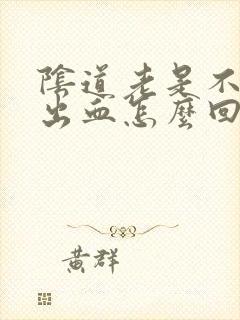 陰道老是不
出血怎麼回
黃群